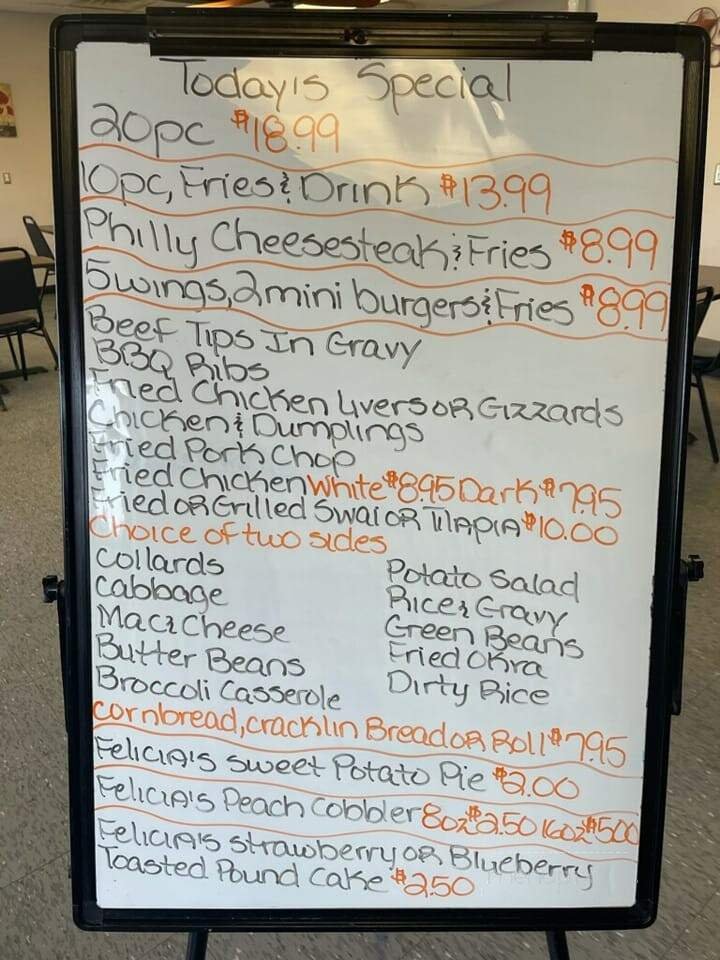 Today's Special
20pc $18.99
10pc, Fries & Drink $13.99
Philly Cheesesteak & Fries $8.99
5 wings, 2 mini burgers & Fries $8.99
Beef Tips In Gravy
BBQ Ribs
Fried Chicken Livers OR Gizzards
Chicken & Dumplings
Fried Pork Chop
Fried Chicken White $8.95 Dark $7.95
Fried OR Grilled Swai OR Tilapia $10.00
Choice of two sides
Collards
Cabbage
Mac & Cheese
Butter Beans
Broccoli Casserole
Potato Salad
Rice & Gravy
Green Beans
Fried Okra
Dirty Rice
Cornbread, cracklin Bread OR Roll $7.95
Felicia's Sweet Potato Pie $2.00
Felicia's Peach Cobbler 8oz $2.50 16oz $5.00
Felicia's Strawberry OR Blueberry
Toasted Pound Cake $2.50